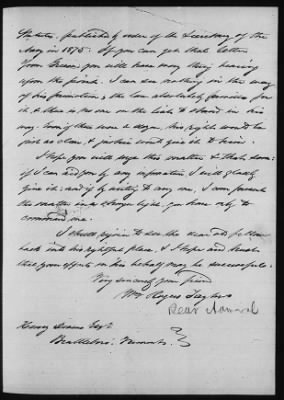 Statutes, published by order of the Secretary of the
Navy in 1875. If you can get that letter
from Green, you will have many thing bearing
upon the point. I can see nothing in the way
of his promotion; the law absolutely provides for
it, & there is no one on the list to stand in his
way. Even if there were a dozen, his right would be
just as clear, & justice would give it to him.
I hope you will urge this matter to that end:
if I can aid you by any information I will gladly
give it; and if by writing to any one, I can present
the matter in a stronger light, you have only to
command me.
I should rejoice to see the dear old fellow
back into his rightful place, & I hope and trust
that your efforts in his behalf may be successful.
Very sincerely your friend
Wm Rogers Taylor
Rear Admiral
Henry Evans Esqr
Brattleboro: Vermont.